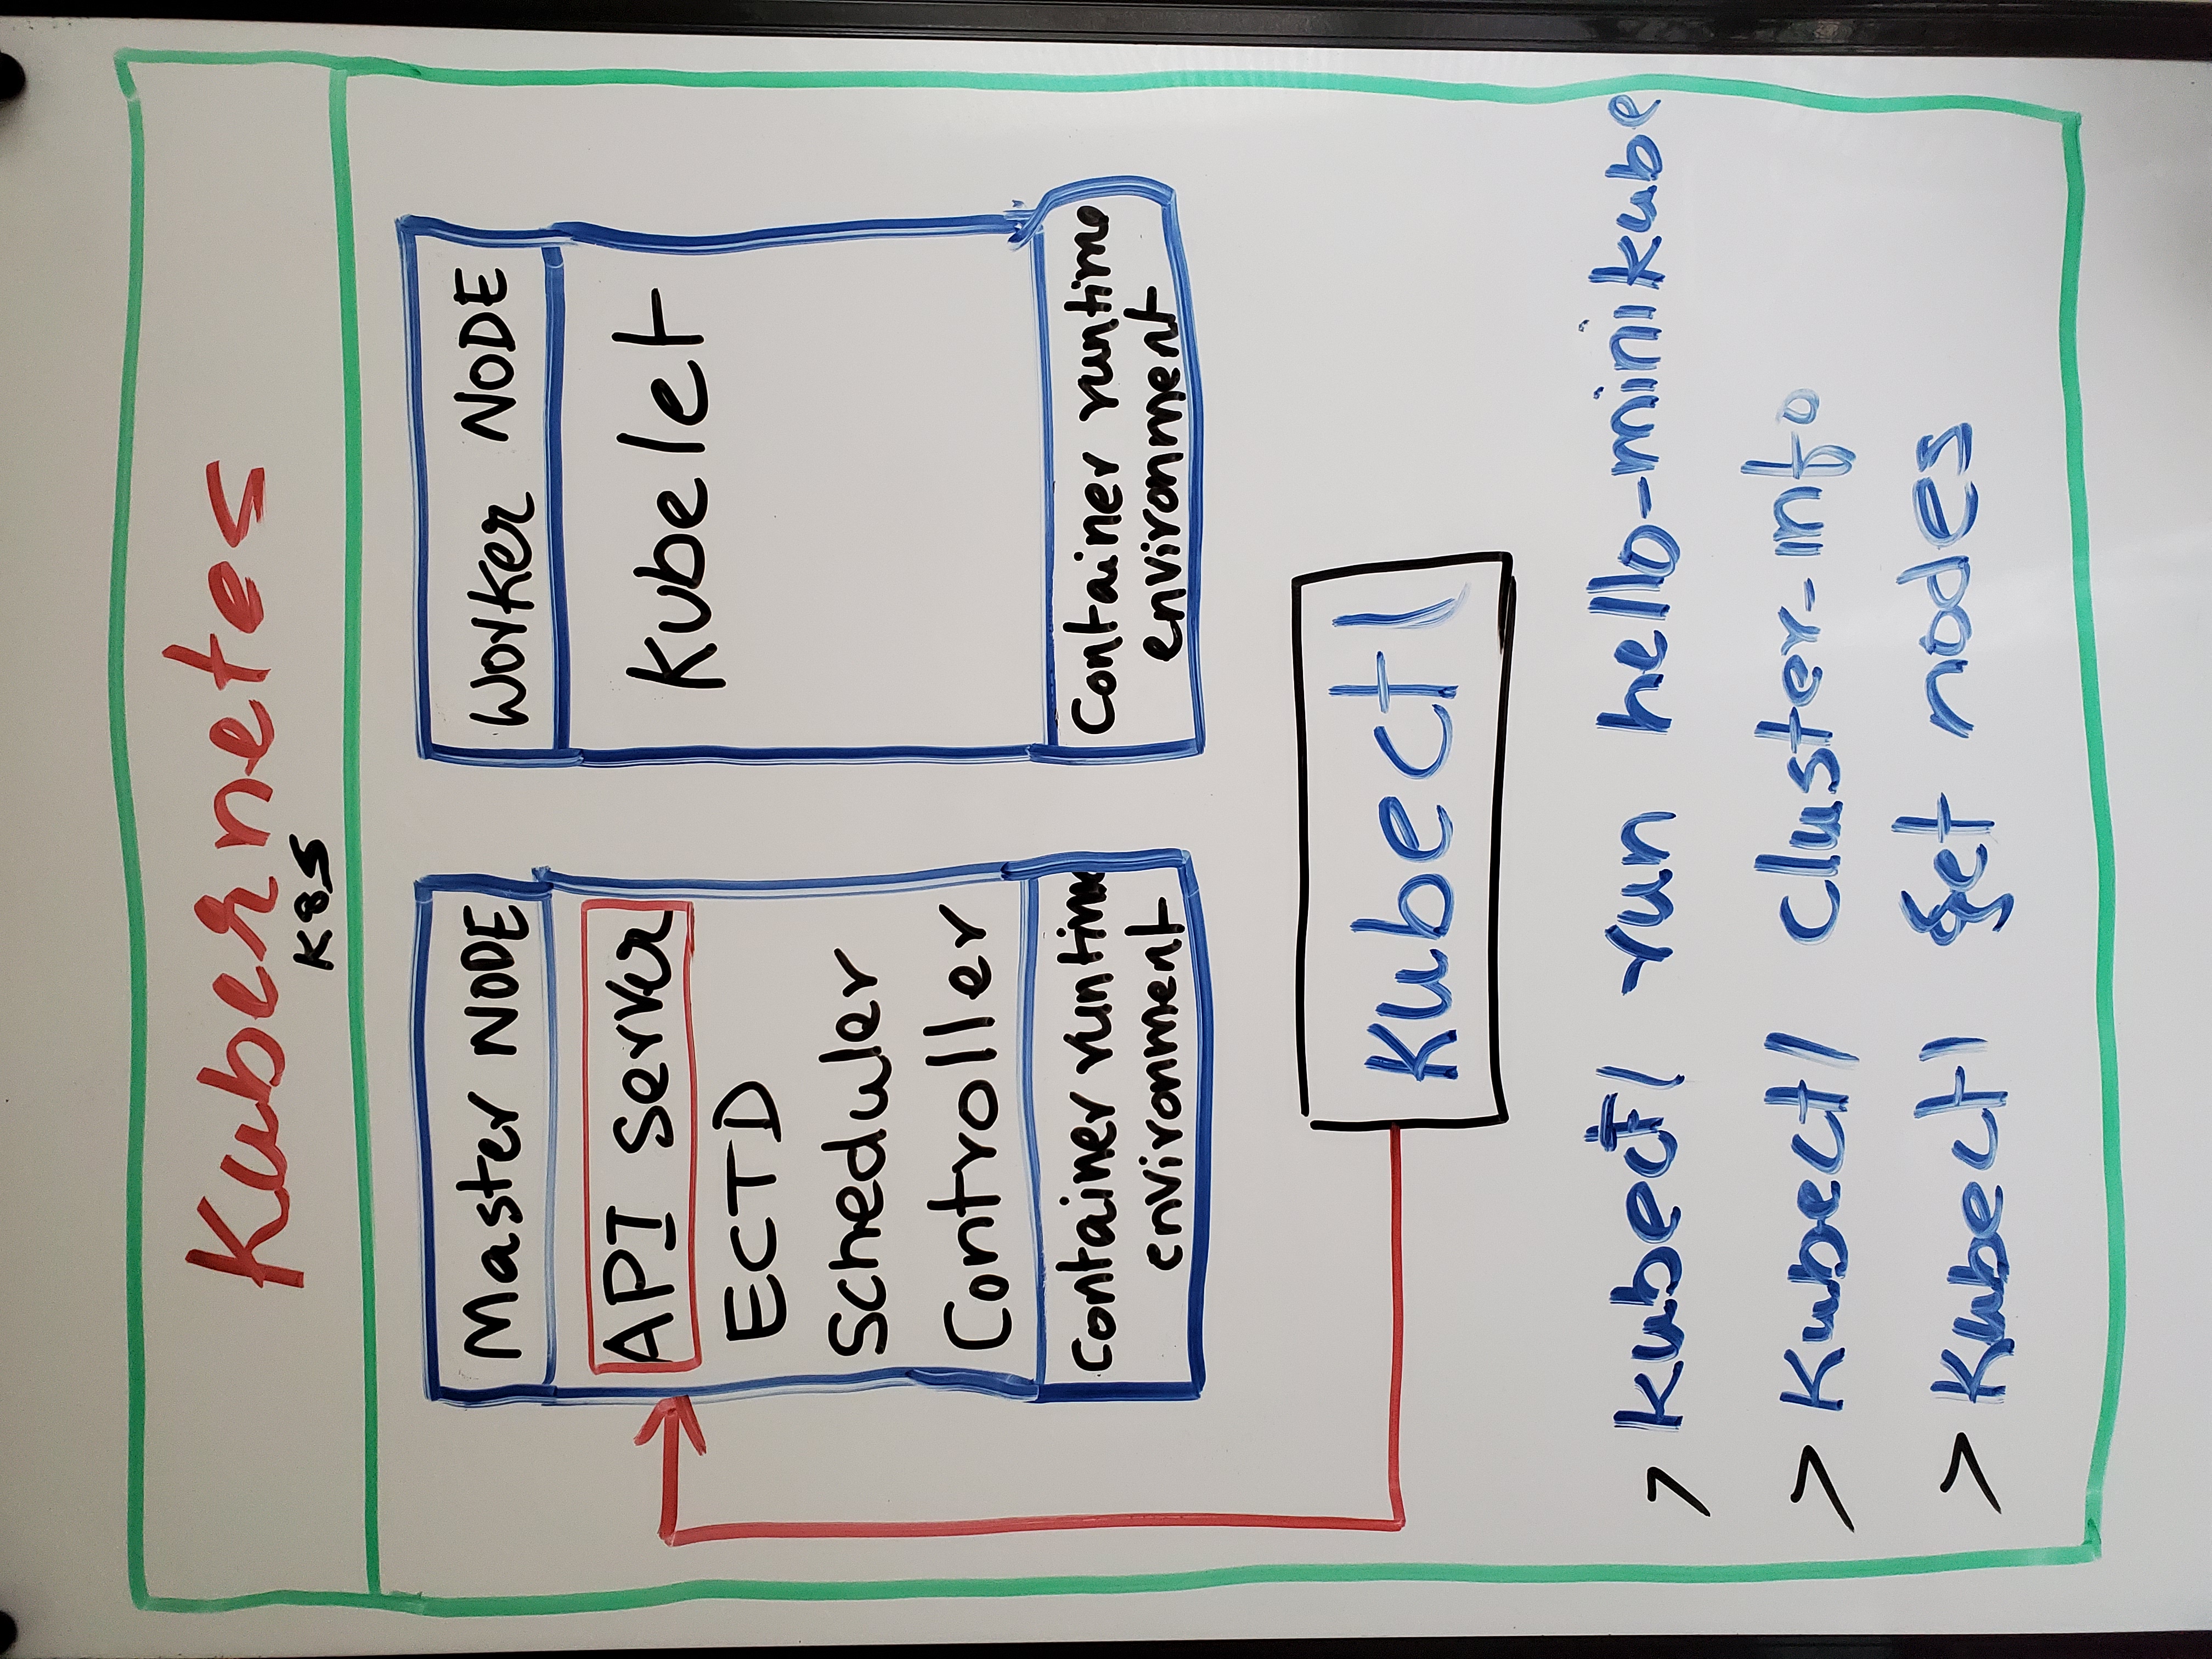 Kubernetes
K8S
Master NODE
API Server
ECTD
Scheduler
Controller
Container runtime
environment
Worker NODE
Kubelet
Container runtime
environment
Kubectl
> kubectl run hello-minikube
> Kubectl cluster-info
> Kubectl get nodes